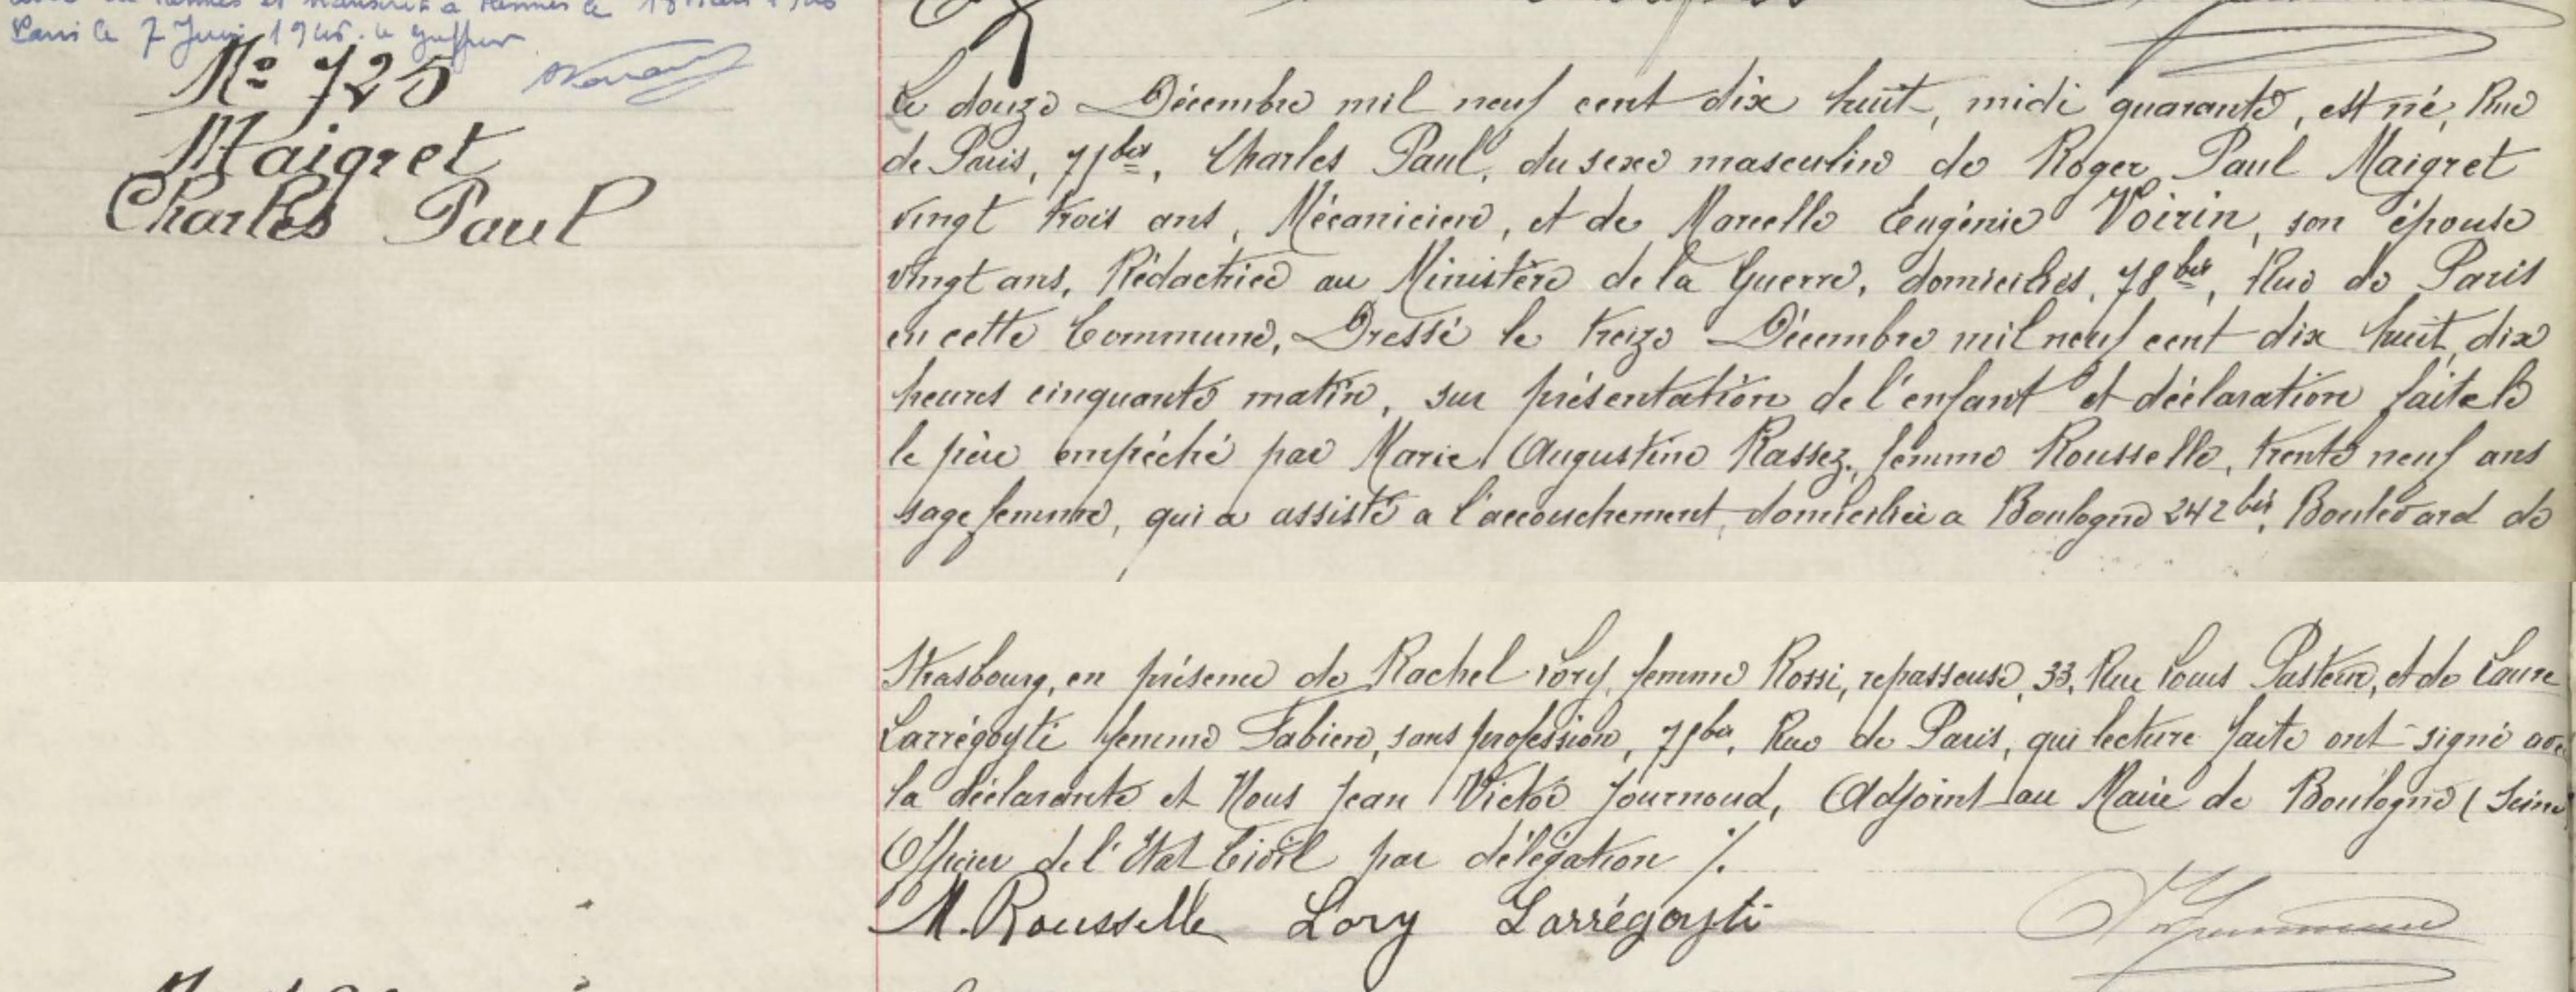 Paris le 7 Juin 1946. le greffier
N° 725
Maigret
Charles Paul
Le douze Décembre mil neuf cent dix huit, midi quarante, est né, Rue
de Paris, 78bis, Charles Paul, du sexe masculin de Roger Paul Maigret
vingt trois ans, Mécanicien, et de Marcelle Eugénie Voirin, son épouse
vingt ans, Rédactrice au Ministère de la Guerre, domiciliés, 78bis, Rue de Paris
en cette Commune, Dressé le treize Décembre mil neuf cent dix huit, dix
heures cinquante matin, sur présentation de l'enfant et déclaration faite
le père empêché par Marie Augustine Rassez, femme Rousselle, trente neuf ans
sage femme, qui a assisté a l'accouchement, domiciliée a Boulogne 242bis, Boulevard de
Strasbourg, en présence de Rachel Lory, femme Rossi, repasseuse, 33, Rue Louis Pasteur, et de Laure
Larrégoyti femme Fabien, sans profession, 78bis, Rue de Paris, qui lecture faite ont signé avec
la déclarante et Nous Jean Victor Journoud, Adjoint au Maire de Boulogne (Seine)
Officier de l'Etat Civil par délégation ./.
M. Rousselle Lory Larrégoyti